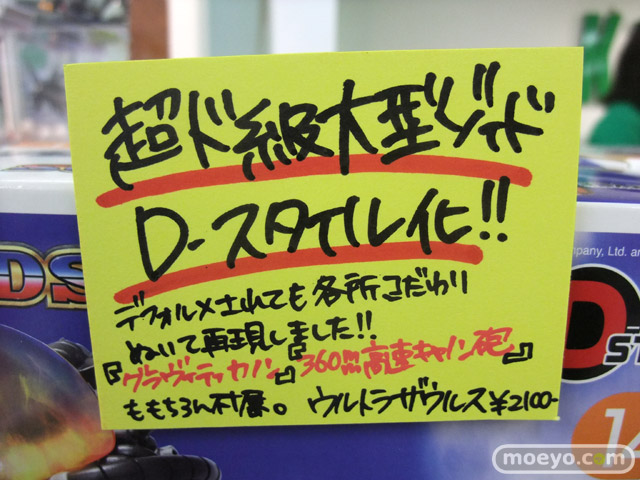 超ド級大型ゾイド
D-スタイル化!!
デフォルメされても各所こだわり
ぬいて再現しました!!
『グラヴィティカノン』『360mm高速キャノン砲』
ももちろん付属。 ウルトラザウルス¥2100-
DS
pany, Ltd. a
D
ST
14
moeyo.com